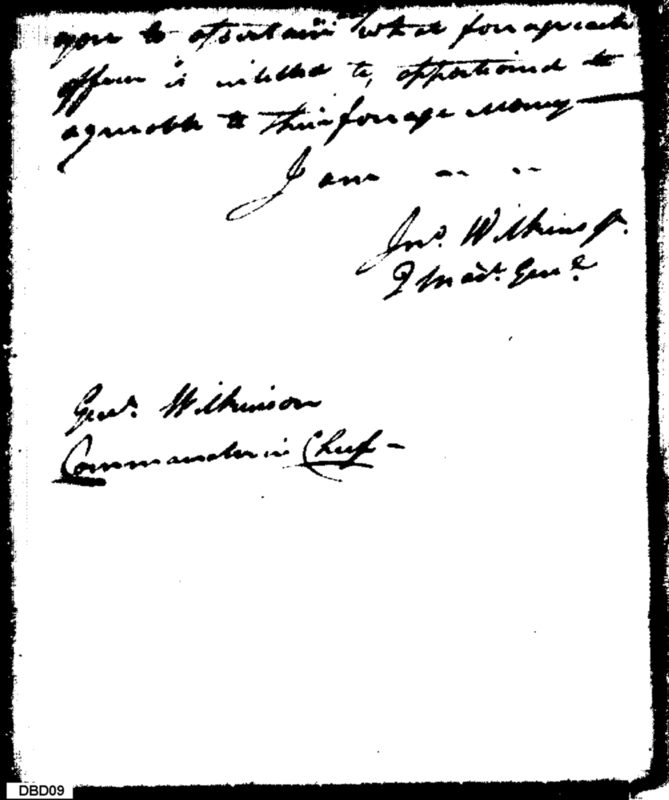 you to assertain what forrage each
officer is intitled to, apportioned to
agreeable to their forrage money —
I am -- --
Jno. Wilkins Jr.
Q Mas'r. Genl.
Genl. Wilkinson
Commander in Chief -
DBD09